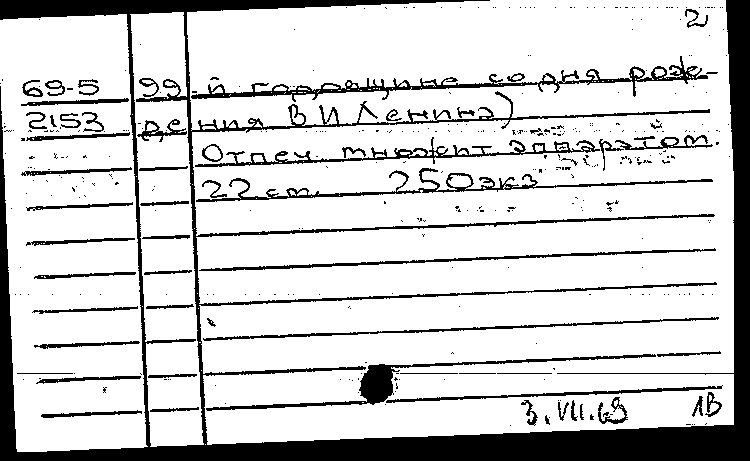 2
69-5 99-й годовщине со дня рож-
2153 дения В И Ленина)
Отпеч множит аппаратом.
22 см. 250 экз
3.VII.69 1В